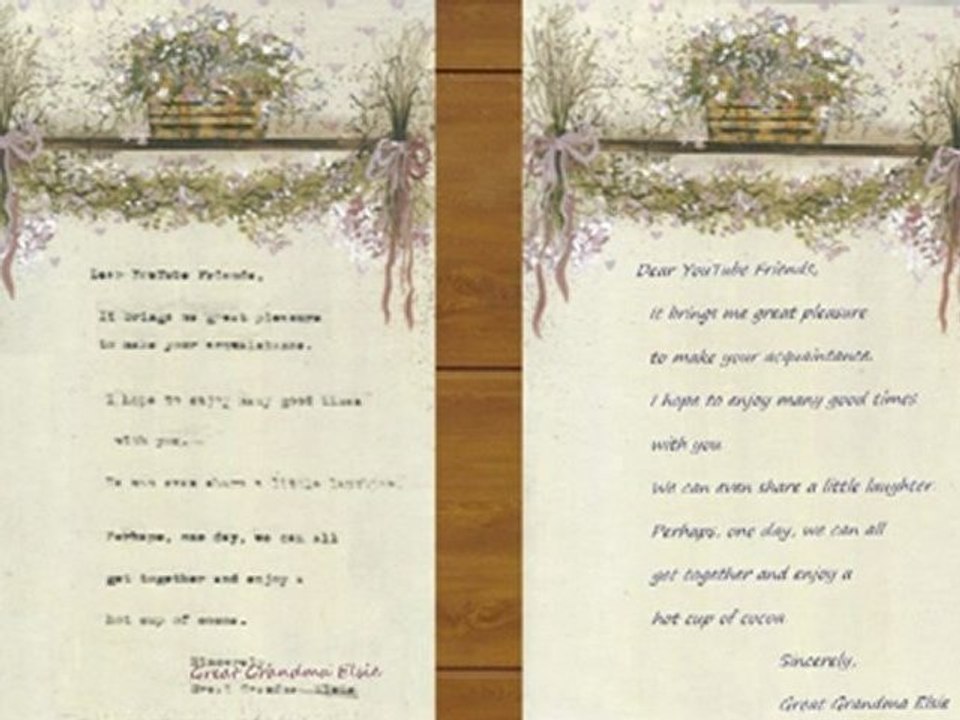 Dear YouTube Friends,
It brings me great pleasure
to make your acquaintance.
I hope to enjoy many good times
with you.
We can even share a little laughter.
Perhaps, one day, we can all
get together and enjoy a
hot cup of cocoa.
Sincerely,
Great Grandma Elsie
Great Grandma Elsie
Dear YouTube Friends,
It brings me great pleasure
to make your acquaintance.
I hope to enjoy many good times
with you
We can even share a little laughter.
Perhaps, one day, we can all
get together and enjoy a
hot cup of cocoa
Sincerely,
Great Grandma Elsie